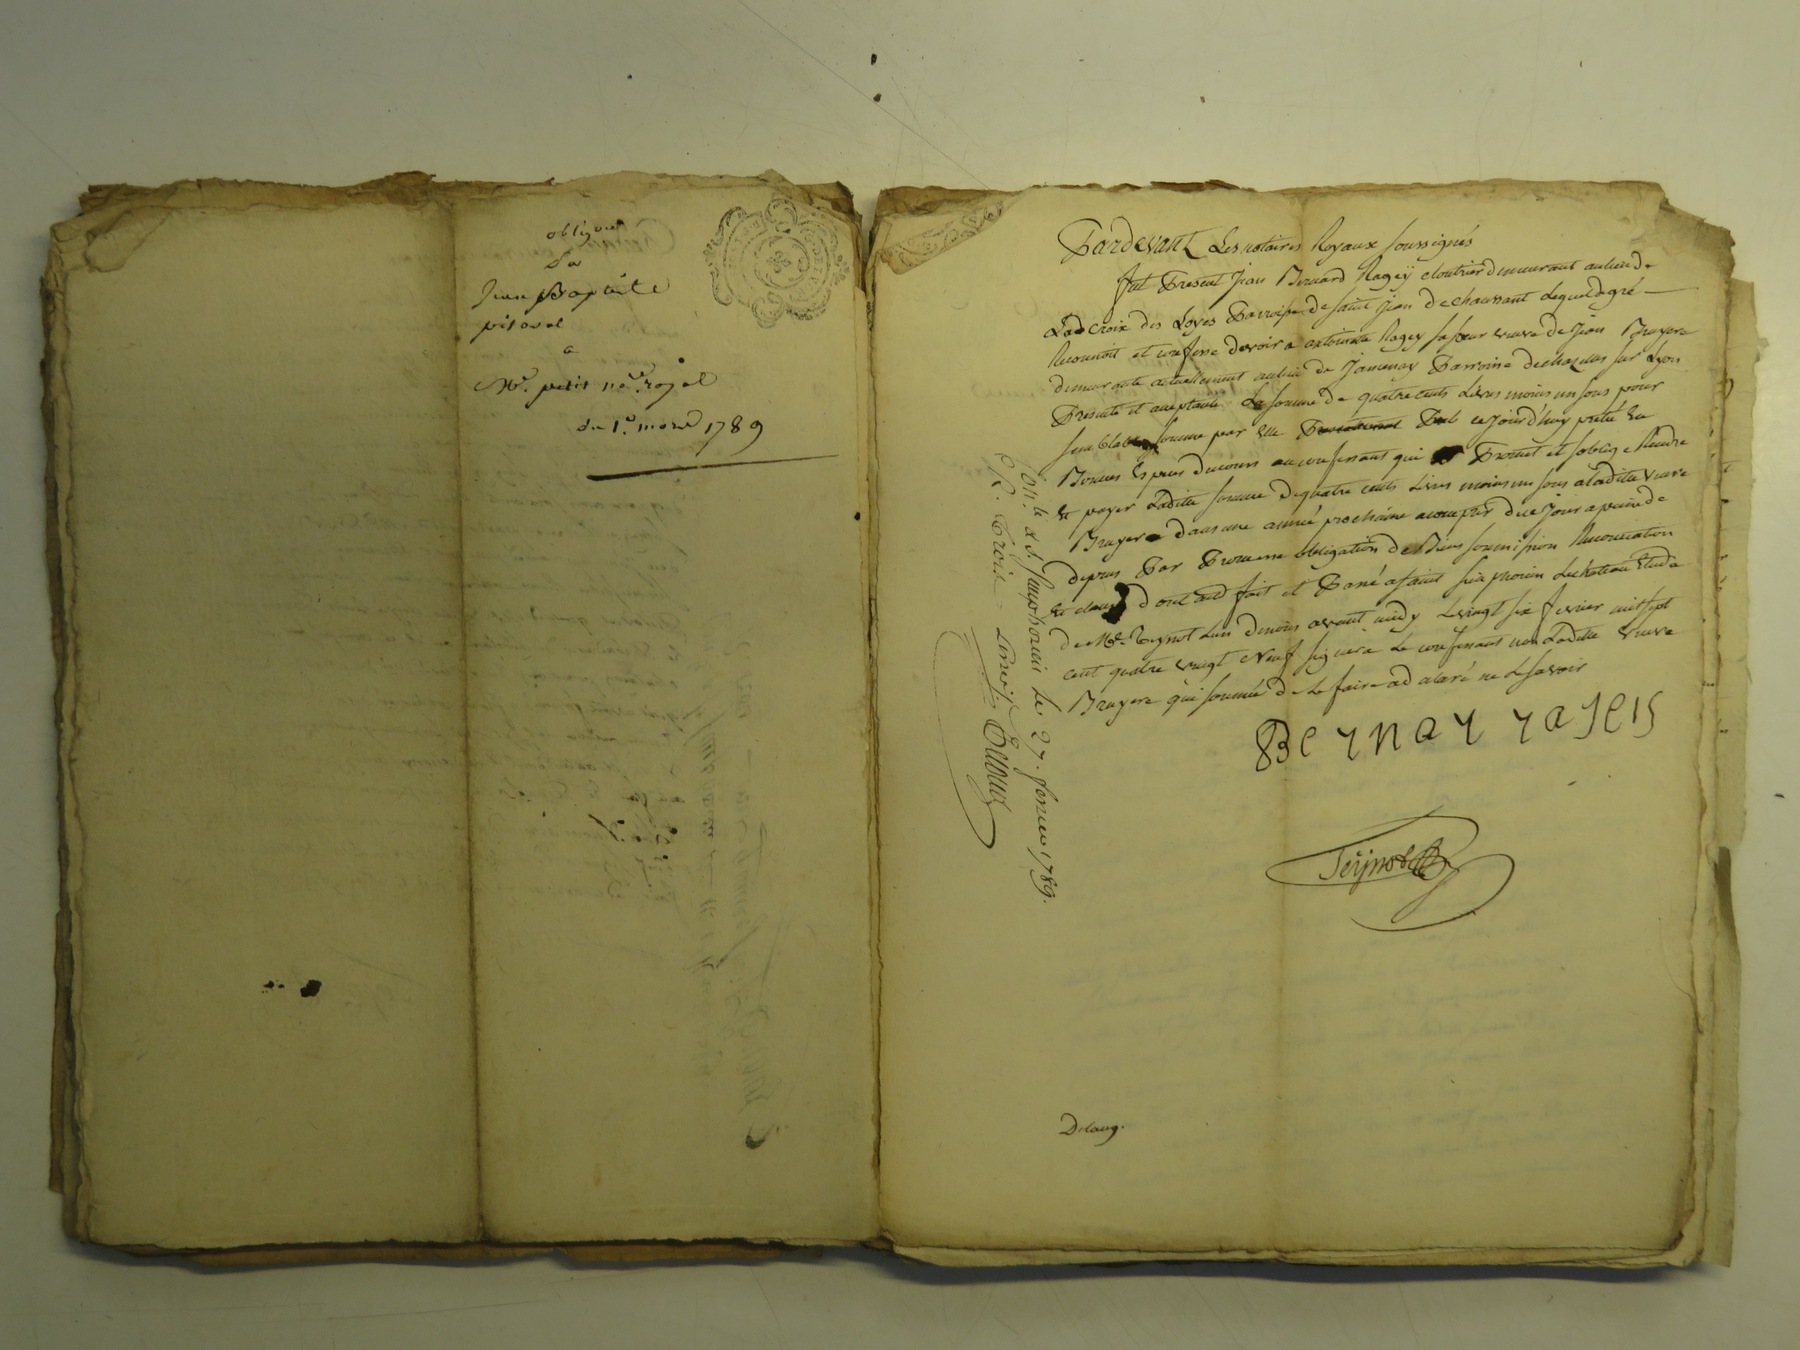 obligaõn
Par
Jean Baptiste
pitaval
a
Me. petit nore. royal
du 1er. mars 1789
Pardevant Les notaires Royaux soussignés
fut Present Jean Bernard Ragey cloutier demeurant au lieu de
La Croix des Loyes Parroisse de saint Jean de chaussant Lequel de gré
Reconnoit et confesse devoir a antoinette Ragey sa soeur veuve de Jean Bruyere
demeurante actuellement au lieu de Jamenay Parroisse de chazelles sur Lyon
Presente et acceptante La somme de quatre cents Livres moins un sous pour
semblable somme par elle ce jourd'huy prêté en
Bonnes Espèces du cours au confessant qui Promet et soblige Rendre
et payer Ladite somme de quatre cents Livres moins un sous a ladite veuve
Bruyere dans une année prochaine a compter de ce jour a peine de
depens Par Promesse obligation de Biens soumission Renonciation
et clauses dont acte fait et Passé a saint simphorien Le chateau Etude
de Me. Teynot Lun de nous avant midy Le vingt six fevrier mil sept
cent quatre vingt Neuf signera Le confessant non Ladite veuve
Bruyere qui sommée de Le faire a declaré ne Le savoir
Beynay yajeis
Teÿnot
Con.le à St. Simphorien le 27. fevrier 1789.
R. trois Livres
Delang.